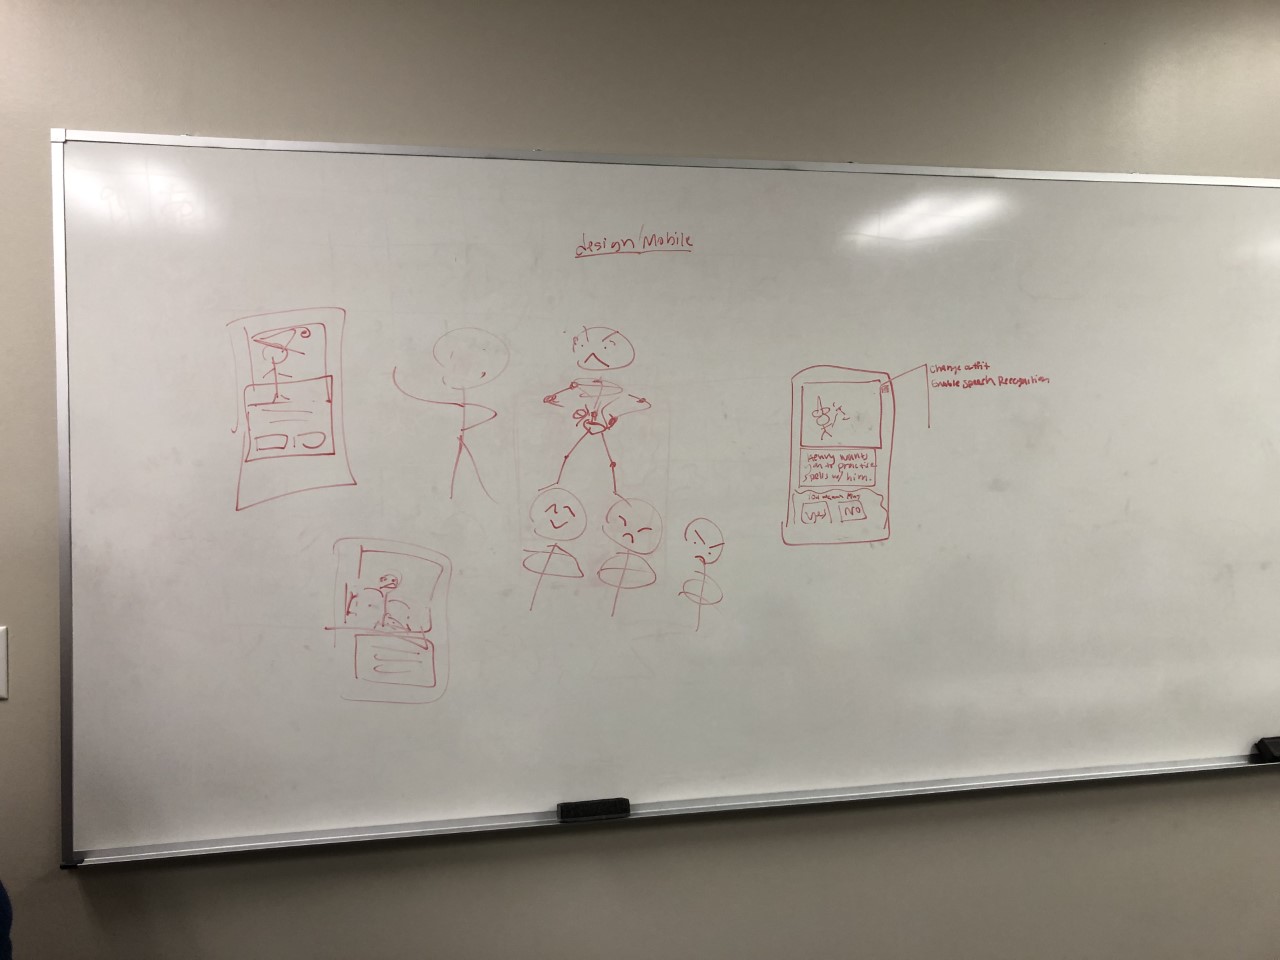 design/Mobile
Change outfit
Enable speech Recognition
Henry wants
you to practice
spells w/ him.
Yes!
NO